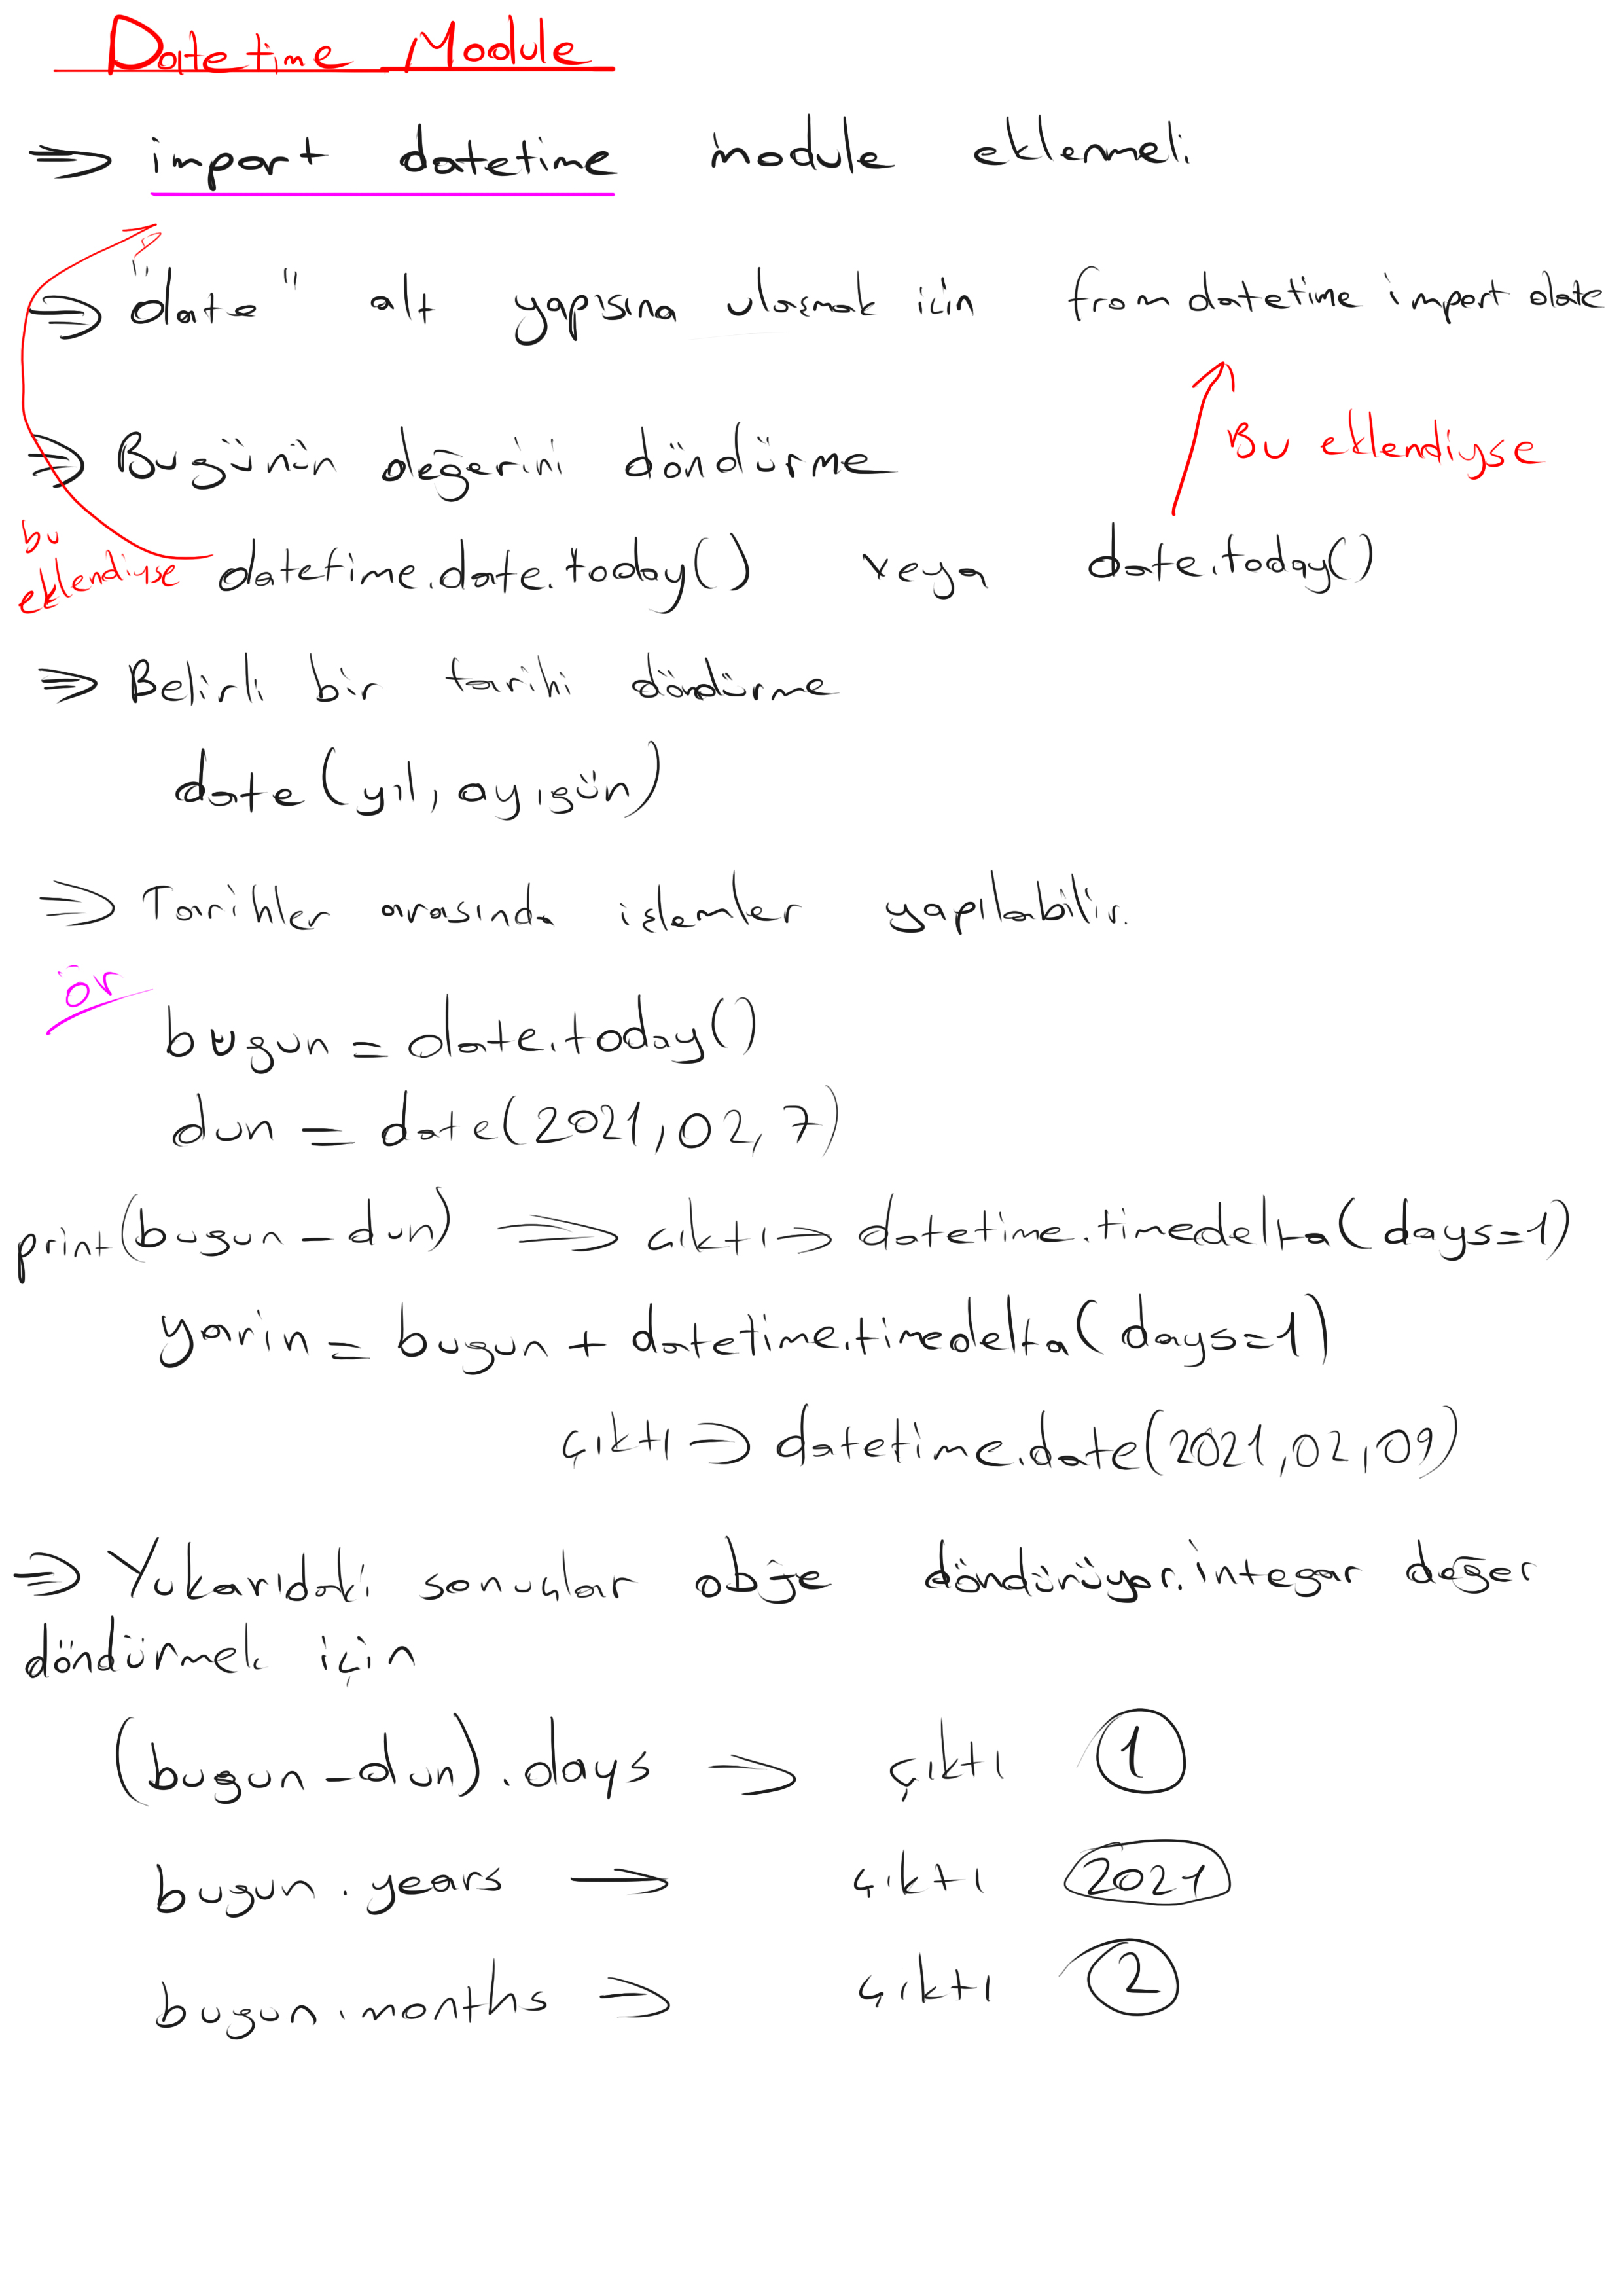 Datetime Module
⇒ import datetime module eklenmeli
⇒ "date" alt yapısına ulaşmak için from datetime import date
Bu eklendiyse
⇒ Bugünün değerini döndürme
bu eklendiyse
datetime.date.today() veya date.today()
⇒ Belirli bir tarihi döndürme
date(yıl, ay, gün)
⇒ Tarihler arasında işlemler yapılabilir.
ör
bugun = date.today()
dun = date(2021, 02, 7)
print(bugun - dun) ⇒ cıktı ⇒ datetime.timedelta(days=1)
yarin = bugun + datetime.timedelta(days=1)
çıktı ⇒ datetime.date(2021, 02, 09)
⇒ Yukarıdaki sonuçlar obje döndürüyor. integar değer
döndürmek için
(bugun - dun).days → çıktı 1
bugun.years → çıktı 2021
bugun.months ⇒ çıktı 2